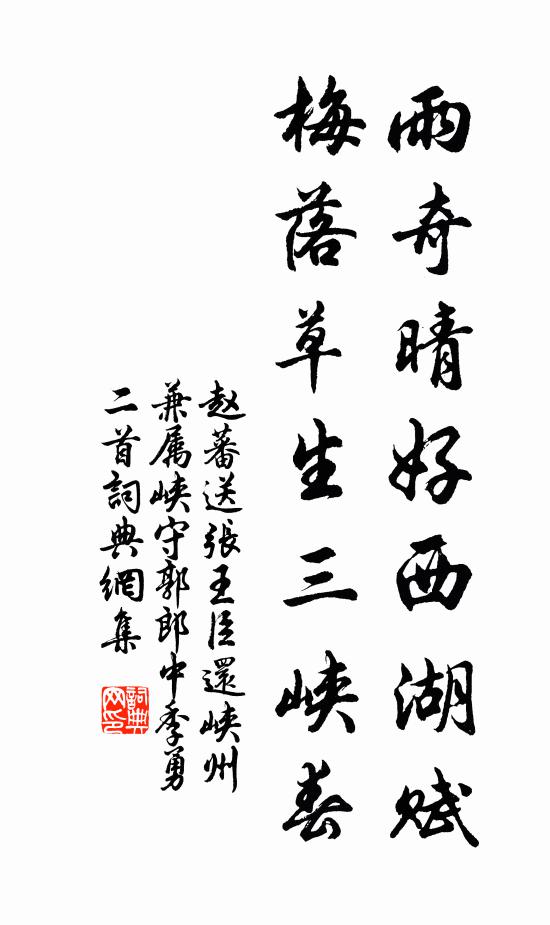 雨奇晴好西湖赋
梅落草生三峡春
赵蕃送張王臣還峽州
兼属峡守郭郎中季勇
二首詞典網集
詞典
网印